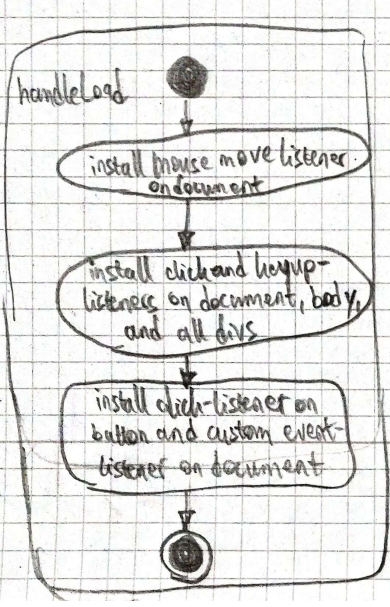 handleLoad
install mouse move listener
on document
install click and keyup-
listeners on document, body,
and all divs
install click-listener on
button and custom event-
listener on document